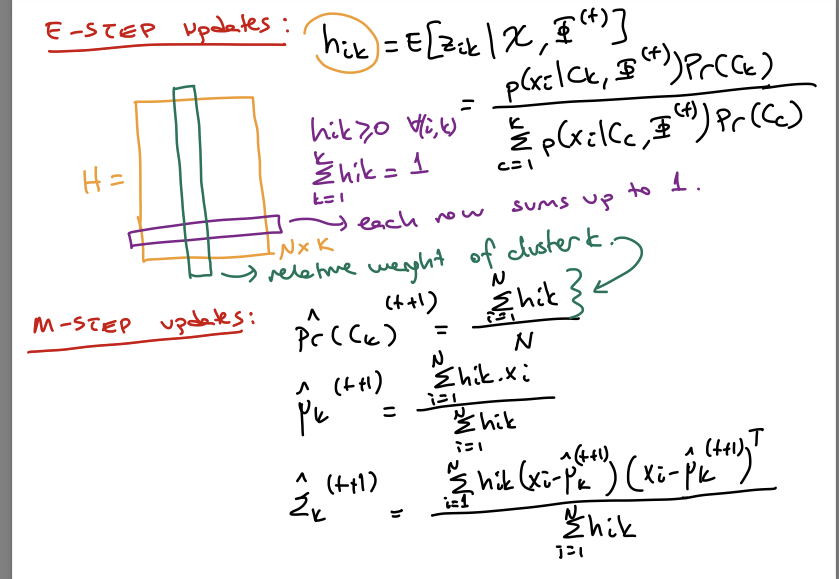 E-STEP updates:
hik = E[zik | X, Φ^(t)]
= p(xi|Ck, Φ^(t)) Pr(Ck) / Σ_{c=1}^{K} p(xi|Cc, Φ^(t)) Pr(Cc)
hik ≥ 0 ∀(i,k)
Σ_{k=1}^{K} hik = 1
H =
→ each row sums up to 1.
N x K
→ relative weight of cluster k.
M-STEP updates:
P̂r(Ck)^(t+1) = Σ_{i=1}^{N} hik / N
μ̂k^(t+1) = Σ_{i=1}^{N} hik.xi / Σ_{i=1}^{N} hik
Σ̂k^(t+1) = Σ_{i=1}^{N} hik (xi-μ̂k^(t+1)) (xi-μ̂k^(t+1))^T / Σ_{i=1}^{N} hik